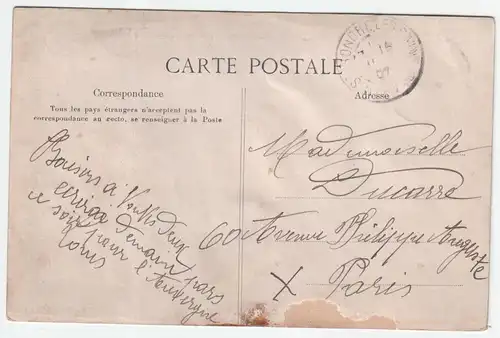 CARTE POSTALE
Correspondance
Tous les pays étrangers n'acceptent pas la
correspondance au recto, se renseigner à la Poste
Adresse
Baisers à Vous Deux
écrirai Demain pars
ce soir pour l'Auvergne
Louis
Mademoiselle
Ducarre
60 Avenue Philippe Auguste
X Paris